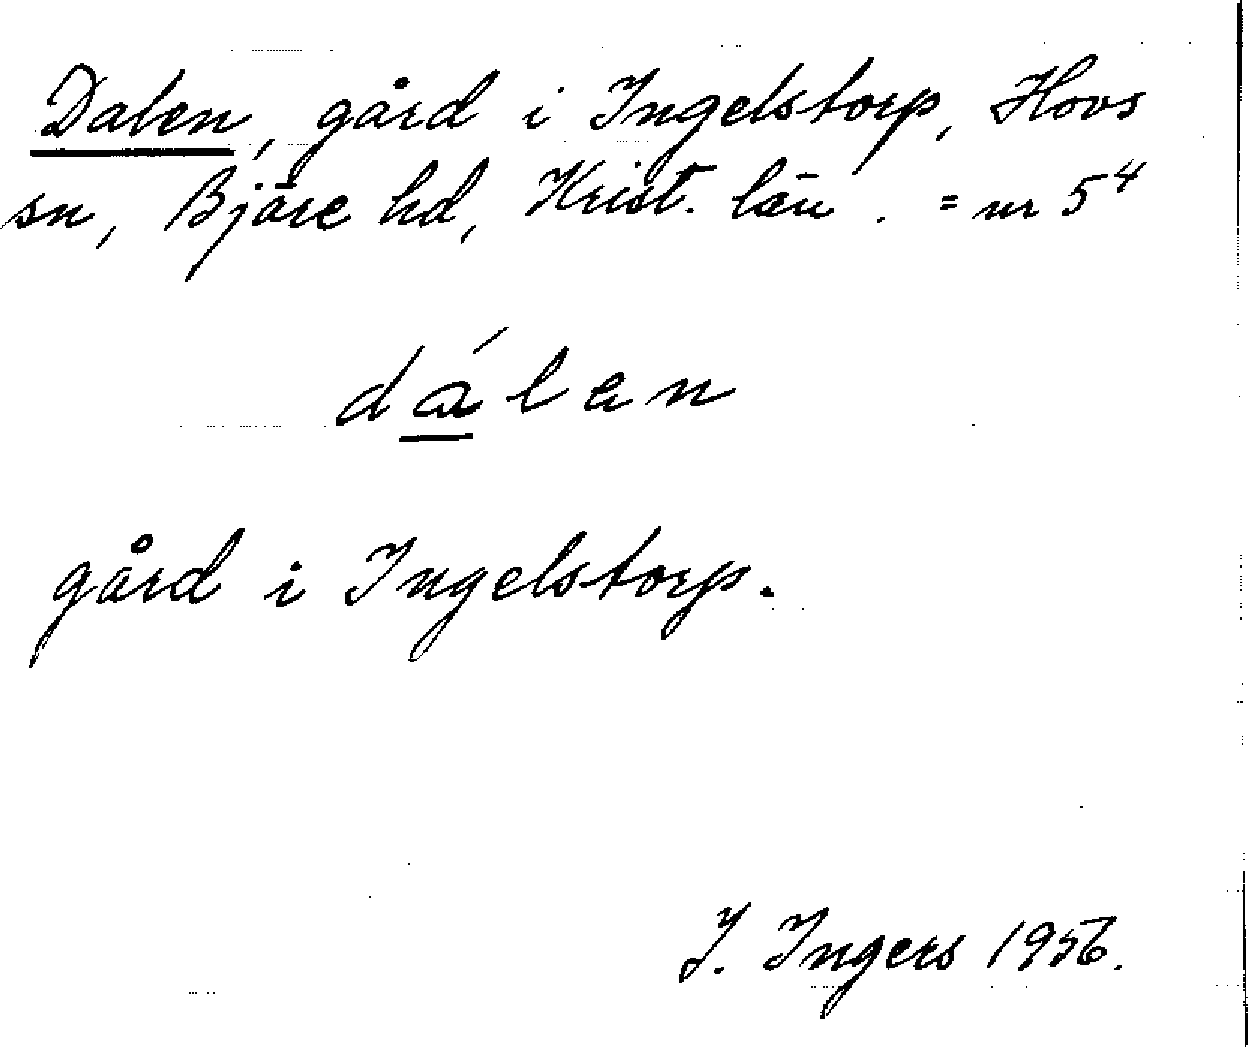 Dalen, gård i Ingelstorp, Hovs
sn, Bjäre hd, Krist. län. = nr 5⁴
dálen
gård i Ingelstorp.
I. Ingers 1956.